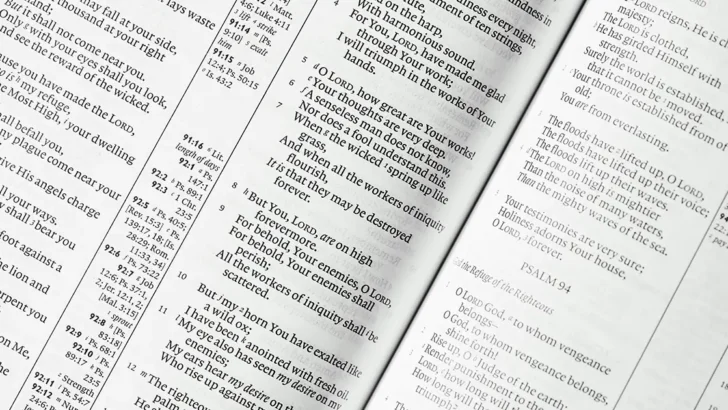 may fall at your side,
thousand at your right
But it shall not come near you.
Only with your eyes shall you look,
And see the reward of the wicked.
you have made the LORD,
is my refuge,
Most High, your dwelling
shall befall you,
any plague come near your
give His angels charge
all your ways.
shall bear you
foot against a
the lion and
serpent you
on Me,
lays waste
4:6; Luke 4:11
91:14
9:10]
him
91:15 a Job
12:4; Ps. 50:15
Is. 43:2
91:16 a Lit.
length of days
92:1 a Ps.
147:1
92:2 a Ps. 89:1
92:3 a 1 Chr.
23:5
92:5 a Ps. 40:5;
[Rev. 15:3]
139:17, 18; [Is.
28:29; Rom.
11:33, 34]
92:6 Ps. 73:22
92:7 Job
12:6; Ps. 37:1,
2; Jer. 12:1, 2;
[Mal. 3:15]
sprout
92:8 Ps.
83:18]
92:9 Ps. 68:1
92:10 Ps.
89:17 Ps.
23:5
Strength
92:11 Ps. 54:7
92:12
on the harp,
With harmonious sound.
4 For You, LORD, have made me glad
through Your work;
I will triumph in the works of Your
hands.
5 O LORD, how great are Your works!
Your thoughts are very deep.
6 A senseless man does not know,
Nor does a fool understand this.
7 When the wicked spring up like
grass,
And when all the workers of iniquity
flourish,
It is that they may be destroyed
forever.
8 But You, LORD, are on high
forevermore.
9 For behold, Your enemies, O LORD,
For behold, Your enemies shall
perish;
All the workers of iniquity shall be
scattered.
10 But my horn You have exalted like
a wild ox;
I have been anointed with fresh oil.
11 My eye also has seen my desire on my
enemies;
My ears hear my desire on the
Who rise up against
12 The righteous
palm
reigns, He is
majesty;
The LORD is clothed,
He has girded Himself with
strength.
Surely the world is established,
that it cannot be moved.
Your throne is established from of
old;
You are from everlasting.
The floods have lifted up, O LORD,
The floods have lifted up their voice;
The floods lift up their waves.
The LORD on high is mightier
Than the noise of many waters,
Than the mighty waves of the sea.
Your testimonies are very sure;
Holiness adorns Your house,
O LORD, forever.
PSALM 94
God the Refuge of the Righteous
O LORD God, to whom vengeance
belongs—
O God, to whom vengeance belongs,
shine forth!
Rise up, O Judge of the earth;
Render punishment to the
LORD, how long will the
How long will
triumph?